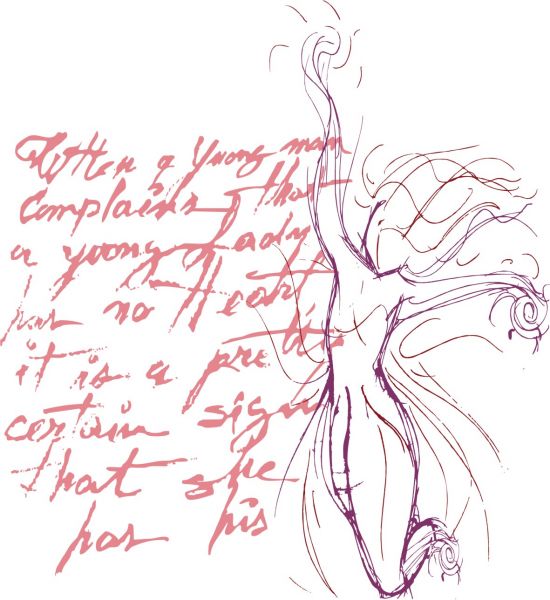 When a young man
complains that
a young Lady
has no Heart,
it is a pretty
certain sign
that she
has his